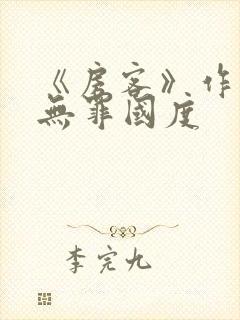 《房客》作
無罪國度
李完九